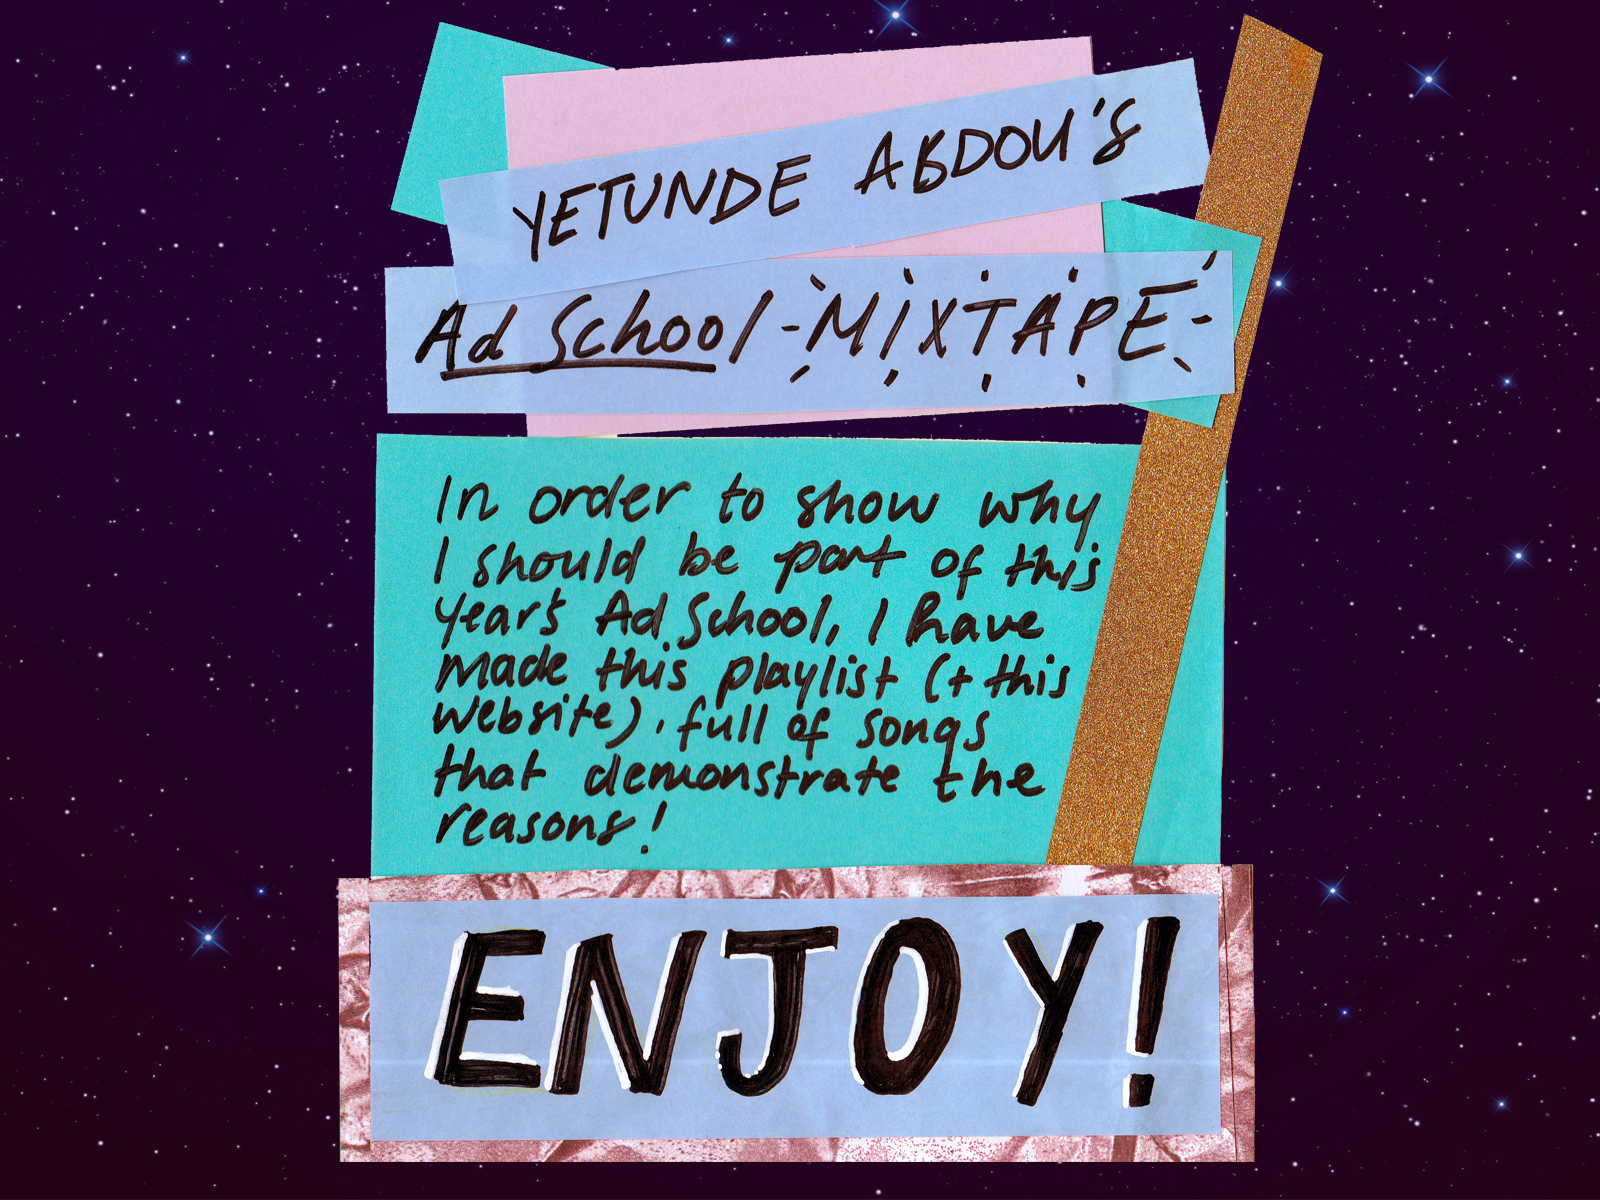 YETUNDE ABDOU'S
Ad School -MIXTAPE-
In order to show why
I should be part of this
year's Ad School, I have
made this playlist (+ this
website), full of songs
that demonstrate the
reasons!
ENJOY!